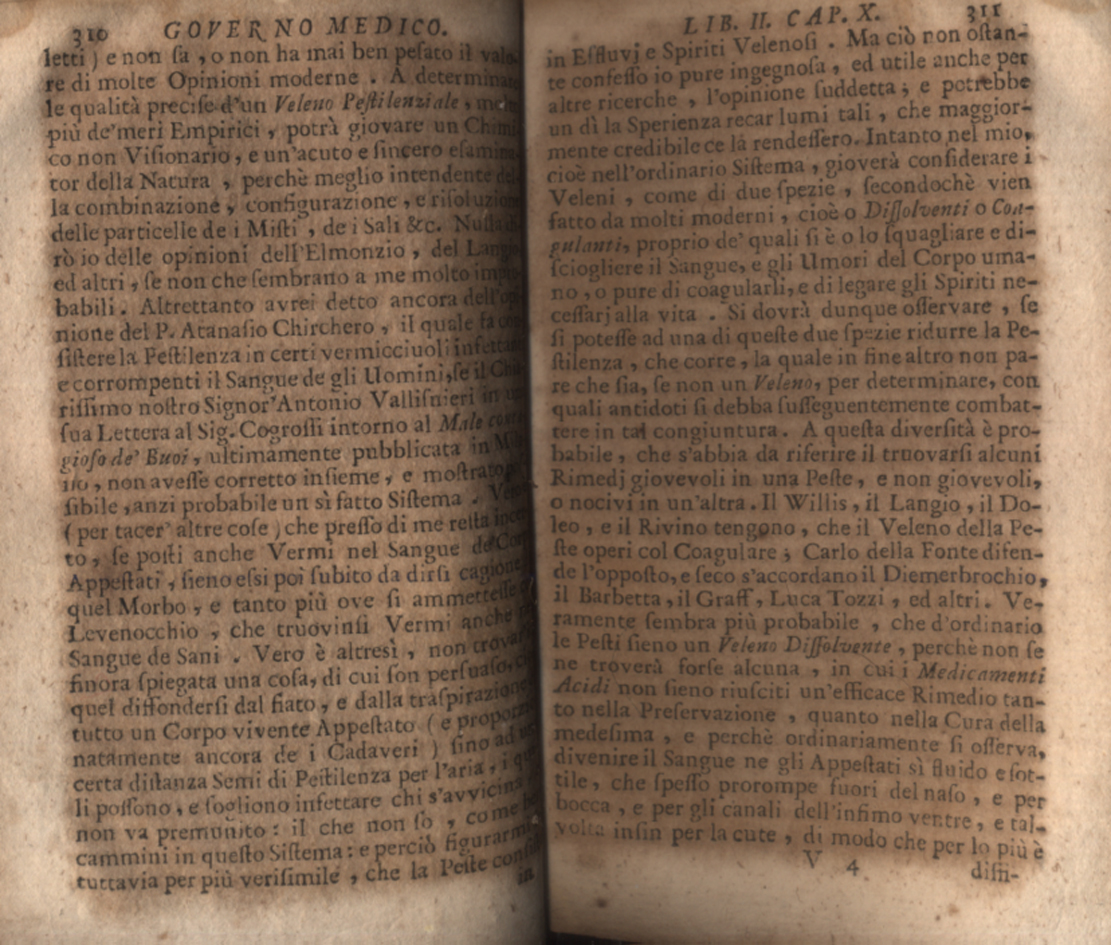 310 GOVERNO MEDICO.
letti ) e non ſa , o non ha mai ben peſato il valo-
re di molte Opinioni moderne . A determinare
le qualità preciſe d'un Veleno Peſtilenziale ,
più de'meri Empirici , potrà giovare un Chimi-
co non Viſionario, e un'acuto e ſincero eſamina-
tor della Natura , perchè meglio intendente del-
la combinazione , configurazione , e riſoluzione
delle particelle de i Miſti , de i Sali &c. Nulla di-
rò io delle opinioni dell'Elmonzio , del Langio
ed altri , ſe non che ſembrano a me molto impro-
babili . Altrettanto avrei detto ancora dell'opi-
nione del P. Atanaſio Chirchero , il quale fa con-
ſiſtere la Peſtilenza in certi vermicciuoli infettanti
e corrompenti il Sangue de gli Uomini, ſe il Chia-
riſſimo noſtro Signor'Antonio Valliſnieri in una
ſua Lettera al Sig. Cogroſſi intorno al Male conta-
gioſo de' Buoi , ultimamente pubblicata in Mila-
no , non aveſſe corretto inſieme , e moſtrato
ſibile , anzi probabile un sì fatto Siſtema .
( per tacer' altre coſe ) che preſſo di me reſta incer-
to , ſe poſti anche Vermi nel Sangue de'
Appeſtati , ſieno eſsi poi ſubito da dirſi cagione
quel Morbo , e tanto più ove ſi ammetteſſe
Levenocchio , che truovinſi Vermi anche
Sangue de Sani . Vero è altresì , non trovarſi
finora ſpiegata una coſa, di cui ſon perſuaſo,
quel diffonderſi dal fiato , e dalla traſpirazione
tutto un Corpo vivente Appeſtato ( e proporzio-
natamente ancora de i Cadaveri ) ſino ad una
certa diſtanza Semi di Peſtilenza per l'aria , i qua-
li poſſono , e ſogliono infettare chi s'avvicina
non va premunito : il che non ſo , come
cammini in queſto Siſtema : e perciò figurarmi
tuttavia per più veriſimile , che la Peſte conſiſta
in
LIB. II. CAP. X. 311
in Effluvj e Spiriti Velenoſi . Ma ciò non oſtan-
te confeſſo io pure ingegnoſa , ed utile anche per
altre ricerche , l'opinione ſuddetta ; e potrebbe
un dì la Sperienza recar lumi tali , che maggior-
mente credibile ce la rendeſſero. Intanto nel mio,
cioè nell'ordinario Siſtema , gioverà conſiderare i
Veleni , come di due ſpezie , ſecondochè vien
fatto da molti moderni , cioè o Diſſolventi o Coa-
gulanti, proprio de' quali ſi è o lo ſquagliare e di-
ſciogliere il Sangue, e gli Umori del Corpo uma-
no , o pure di coagularli, e di legare gli Spiriti ne-
ceſſarj alla vita . Si dovrà dunque oſſervare , ſe
ſi poteſſe ad una di queſte due ſpezie ridurre la Pe-
ſtilenza , che corre , la quale in fine altro non pa-
re che ſia, ſe non un Veleno, per determinare, con
quali antidoti ſi debba ſuſſeguentemente combat-
tere in tal congiuntura . A queſta diverſità è pro-
babile , che s'abbia da riferire il truovarſi alcuni
Rimedj giovevoli in una Peſte, e non giovevoli,
o nocivi in un'altra. Il Willis, il Langio , il Do-
leo , e il Rivino tengono , che il Veleno della Pe-
ſte operi col Coagulare ; Carlo della Fonte difen-
de l'oppoſto, e ſeco s'accordano il Diemerbrochio,
il Barbetta , il Graff , Luca Tozzi , ed altri . Ve-
ramente ſembra più probabile , che d'ordinario
le Peſti ſieno un Veleno Diſſolvente , perchè non ſe
ne troverà forſe alcuna , in cui i Medicamenti
Acidi non ſieno riuſciti un'efficace Rimedio tan-
to nella Preſervazione , quanto nella Cura della
medeſima , e perchè ordinariamente ſi oſſerva,
divenire il Sangue ne gli Appeſtati sì fluido e ſot-
tile , che ſpeſſo prorompe fuori del naſo , e per
bocca , e per gli canali dell'infimo ventre , e tal-
volta inſin per la cute , di modo che per lo più è
V 4 diffi-